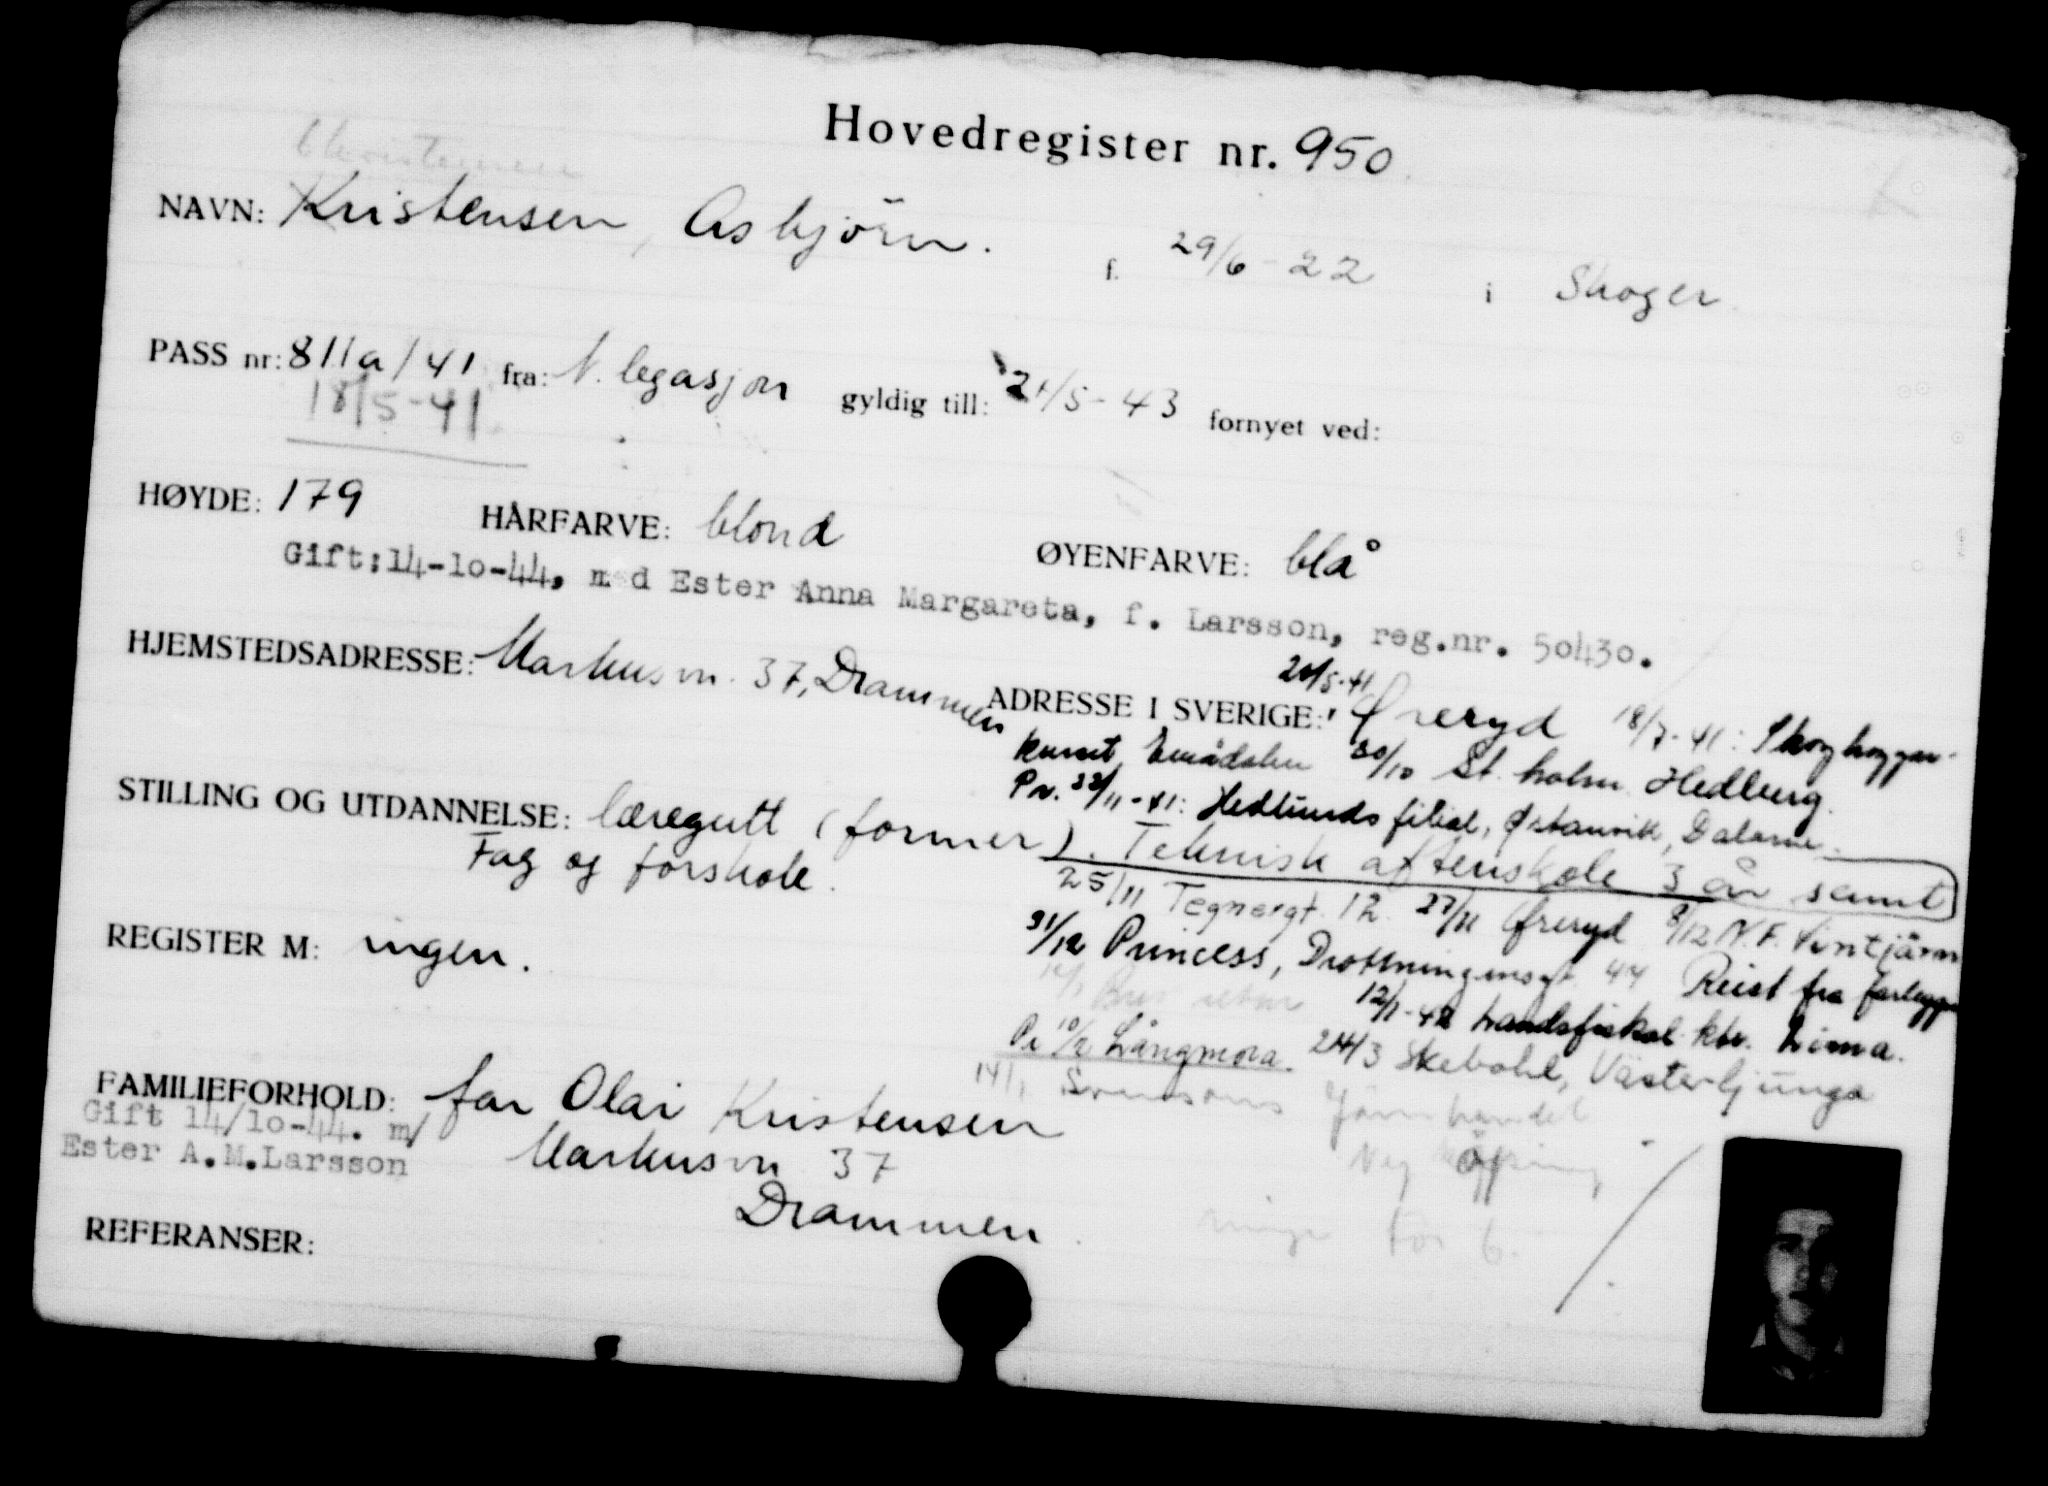 Hovedregister nr. 950
Christensen
NAVN: Kristensen, Asbjörn. f. 29/6-22 i Skoger
PASS nr: 811a/41 fra: N. legasjon gyldig till: 21/5-43 fornyet ved:
18/5-41.
HØYDE: 179 HÅRFARVE: blond ØYENFARVE: blå
Gift:14-10-44, med Ester Anna Margareta, f. Larsson, reg.nr. 50430.
HJEMSTEDSADRESSE: Markusvn. 37, Drammen
ADRESSE I SVERIGE: 20/5-41 Øreryd 18/7-41: Skoghygger-
kurset 30/10 St. holm Hedberg.
Pr. 22/11-41: Hedlunds filial, Østanvik, Dalarne
STILLING OG UTDANNELSE: læregutt (former). Teknisk aftenskole 3 år samt
Fag og forskole.
25/11 Tegnergt. 12. 27/11 Øreryd 8/12 N.F. Vintjärn
REGISTER M: ingen.
31/12 Princess, Drottningensgt. 44 Reist fra
12/1-42 Landsfiskal. ktr. Lima.
Pr 10/2 Långmora. 24/3 Skebohl, Västerljunga
14/1 Svensons Järnhandel
FAMILIEFORHOLD: far Olai Kristensen
Gift 14/10-44. m/
Ester A.M.Larsson
Markusvn 37
Drammen
REFERANSER: